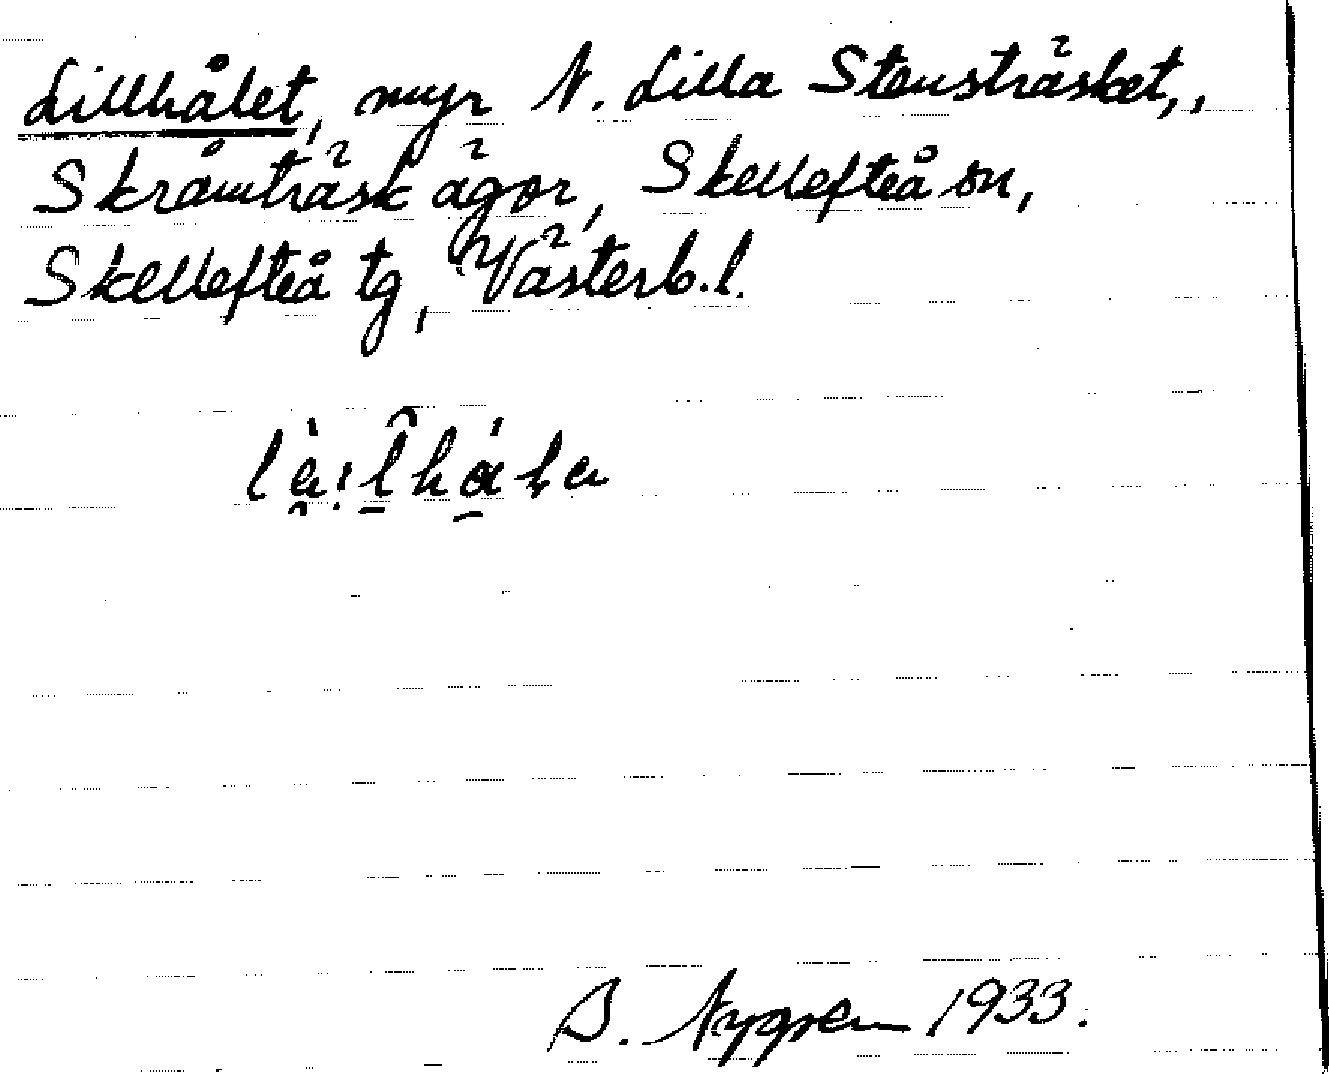 Lillhålet, myr N. Lilla Stensträsket,,
Skråmträsk ägor, Skellefteå sn,
Skellefteå tg, Västerb.l.
B. Nygren 1933.